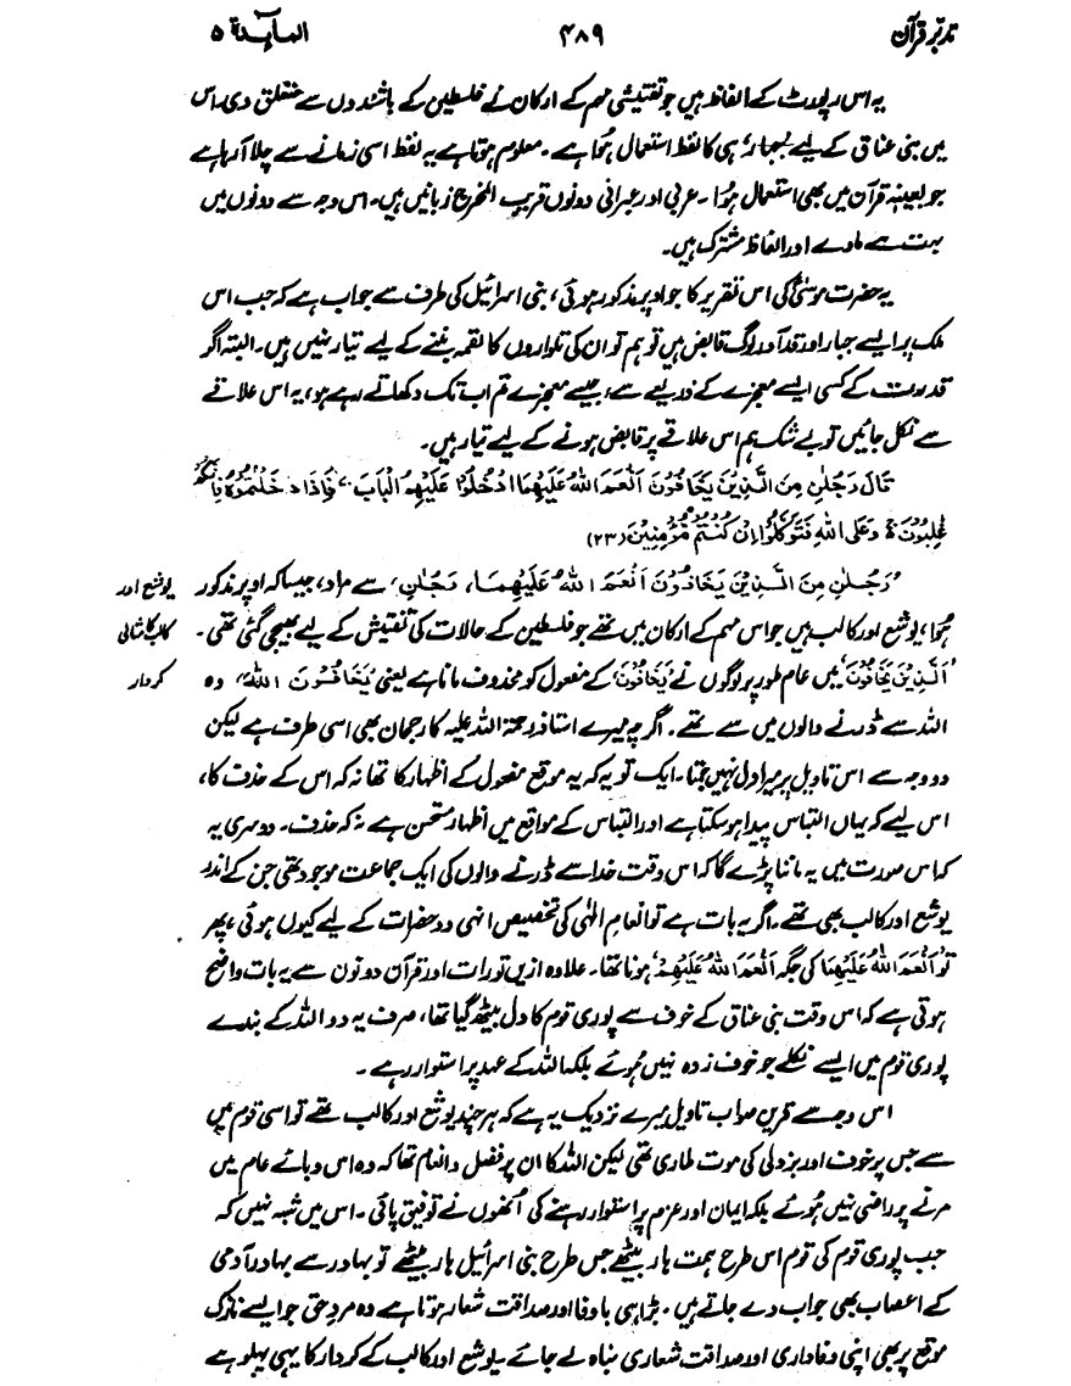 تدبّرِ قرآن ۴۸۹ المآىٕدة ۵
یہ اس رپورٹ کے الفاظ ہیں جو تفتیشی مہم کے ارکان نے فلسطین کے باشندوں سے متعلق دی۔ اس
میں بنی عناق کے لیے 'جبار' ہی کا لفظ استعمال ہُوا ہے۔ معلوم ہوتا ہے یہ لفظ اسی زمانے سے چلا آرہا ہے
جو بعینہٖ قرآن میں بھی استعمال ہُوا۔ عربی اور عبرانی دونوں قریب المخرج زبانیں ہیں۔ اس وجہ سے دونوں میں
بہت سے مادے اور الفاظ مشترک ہیں۔
یہ حضرت موسیٰؑ کی اس تقریر کا جو اوپر مذکور ہوئی، بنی اسرائیل کی طرف سے جواب ہے کہ جب اس
ملک پر ایسے جبار اور قدآور لوگ قابض ہیں تو ہم تو ان کی تلواروں کا لقمہ بننے کے لیے تیار نہیں ہیں۔ البتہ اگر
قدرت کے کسی ایسے معجزے کے ذریعے سے، جیسے معجزے تم اب تک دکھاتے رہے ہو، یہ اس علاقے
سے نکل جائیں تو بے شک ہم اس علاقے پر قابض ہونے کے لیے تیار ہیں۔
قَالَ رَجُلٰنِ مِنَ الَّذِيْنَ يَخَافُوْنَ اَنْعَمَ اللهُ عَلَيْهِمَا ادْخُلُوْا عَلَيْهِمُ الْبَابَ ۚ فَاِذَا دَخَلْتُمُوْهُ فَاِنَّكُمْ
غٰلِبُوْنَ ۚ وَعَلَى اللهِ فَتَوَكَّلُوْٓا اِنْ كُنْتُمْ مُّؤْمِنِيْنَ (۲۳)
'رَجُلٰنِ مِنَ الَّذِيْنَ يَخَافُوْنَ اَنْعَمَ اللهُ عَلَيْهِمَا، رَجُلٰنِ' سے مراد، جیسا کہ اوپر مذکور یوشع اور
ہُوا، یوشع اور کالب ہیں جو اس مہم کے ارکان میں تھے جو فلسطین کے حالات کی تفتیش کے لیے بھیجی گئی تھی۔ کالب کا مثالی
'اَلَّذِيْنَ يَخَافُوْنَ' میں عام طور پر لوگوں نے 'يَخَافُوْنَ' کے مفعول کو محذوف مانا ہے یعنی 'يَخَافُوْنَ اللهَ' وہ کردار
اللہ سے ڈرنے والوں میں سے تھے۔ اگرچہ میرے استاذ رحمۃ اللہ علیہ کا رجحان بھی اسی طرف ہے لیکن
دو وجہ سے اس تاویل پر میرا دل نہیں جمتا۔ ایک تو یہ کہ یہ موقع مفعول کے اظہار کا تھا نہ کہ اس کے حذف کا،
اس لیے کہ یہاں التباس پیدا ہو سکتا ہے اور التباس کے مواقع میں اظہار مستحسن ہے نہ کہ حذف۔ دوسری یہ
کہ اس صورت میں یہ ماننا پڑے گا کہ اس وقت خدا سے ڈرنے والوں کی ایک جماعت موجود تھی جن کے اندر
یوشع اور کالب بھی تھے۔ اگر یہ بات ہے تو انعامِ الٰہی کی تخصیص انہی دو حضرات کے لیے کیوں ہوئی، پھر
تو 'اَنْعَمَ اللهُ عَلَيْهِمَا' کی جگہ 'اَنْعَمَ اللهُ عَلَيْهِمْ' ہونا تھا۔ علاوہ ازیں تورات اور قرآن دونوں سے یہ بات واضح
ہوتی ہے کہ اس وقت بنی عناق کے خوف سے پوری قوم کا دل بیٹھ گیا تھا، صرف یہ دو اللہ کے بندے
پوری قوم میں ایسے نکلے جو خوف زدہ نہیں ہُوئے بلکہ اللہ کے عہد پر استوار رہے۔
اس وجہ سے قرینِ صواب تاویل میرے نزدیک یہ ہے کہ ہر چند یوشع اور کالب تھے تو اسی قوم میں
سے جس پر خوف اور بزدلی کی موت طاری تھی لیکن اللہ کا ان پر فضل و انعام تھا کہ وہ اس وبائے عام میں
مرنے پر راضی نہیں ہُوئے بلکہ ایمان اور عزم پر استوار رہنے کی اُنھوں نے توفیق پائی۔ اس میں شبہ نہیں کہ
جب پوری قوم کی قوم اس طرح ہمت ہار بیٹھے جس طرح بنی اسرائیل ہار بیٹھے تو بہادر سے بہادر آدمی
کے اعصاب بھی جواب دے جاتے ہیں۔ بڑا ہی باوفا اور صداقت شعار ہوتا ہے وہ مردِ حق جو ایسے نازک
موقع پر بھی اپنی وفاداری اور صداقت شعاری نباہ لے جائے۔ یوشع اور کالب کے کردار کا یہی پہلو ہے